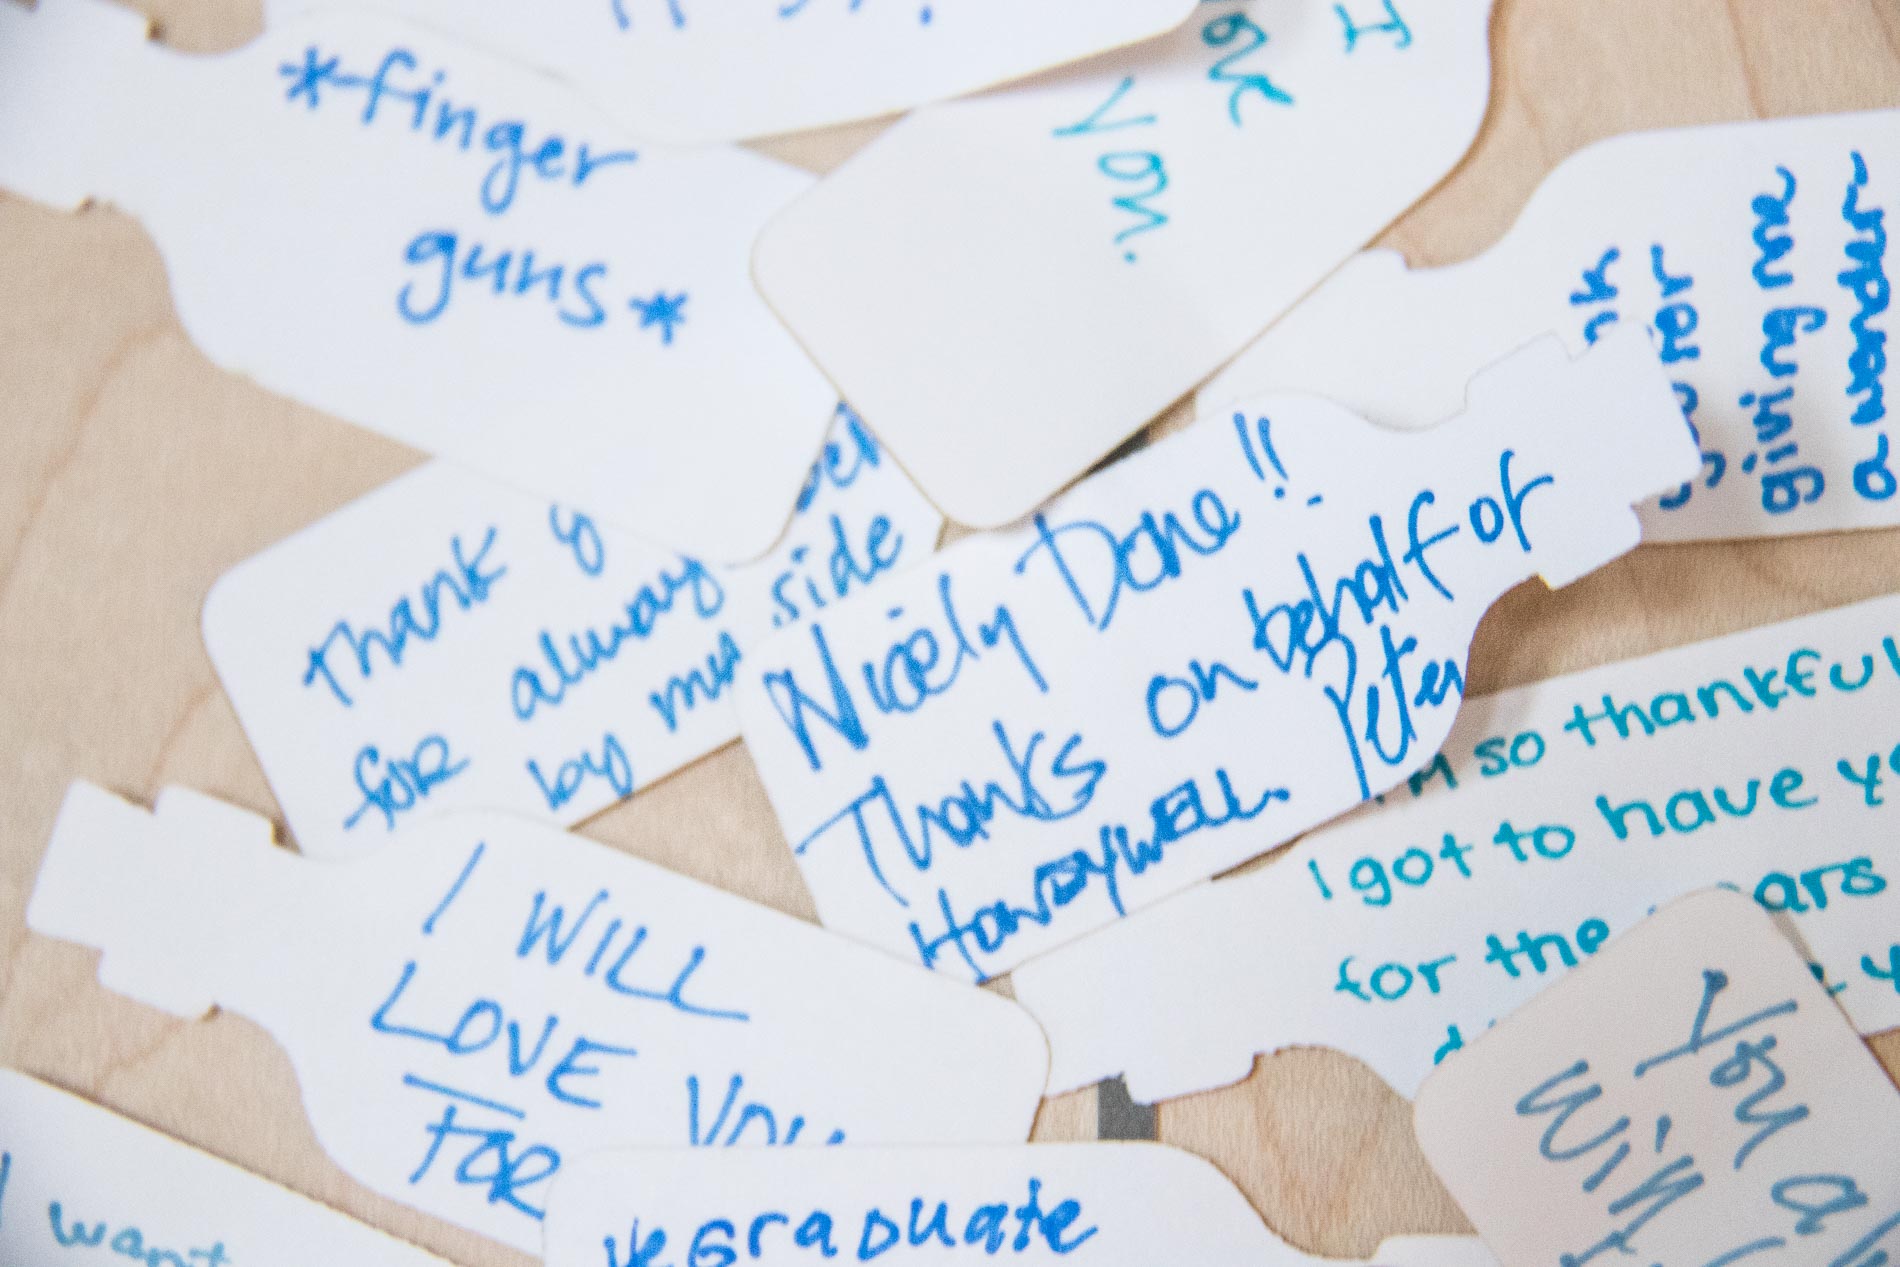 *finger
guns*
I
love
You.
for
giving me
a wonder
Thank
for always
by my side
Nicely Done!!
Thanks on behalf of
Honeywell. Peter
I'm so thankful
I got to have
for the
I WILL
LOVE YOU
FOR
You
will
graduate
want